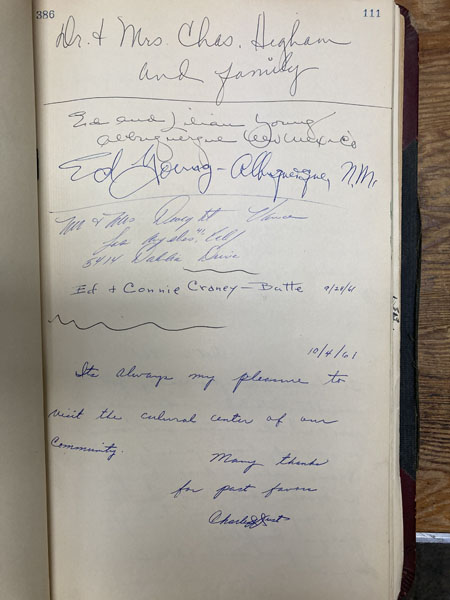 386
111
Dr. & Mrs. Chas. Higham
and family
Ed and Lilian Young
Albuquerque New Mexico
Ed Young - Albuquerque, N.M.
Mr & Mrs Dwight
Los Angeles, Calif
5414 Drive
Ed & Connie Craney - Butte 9/28/61
10/4/61
Its always my pleasure to
visit the cultural center of our
Community.
Many thanks
for past favors